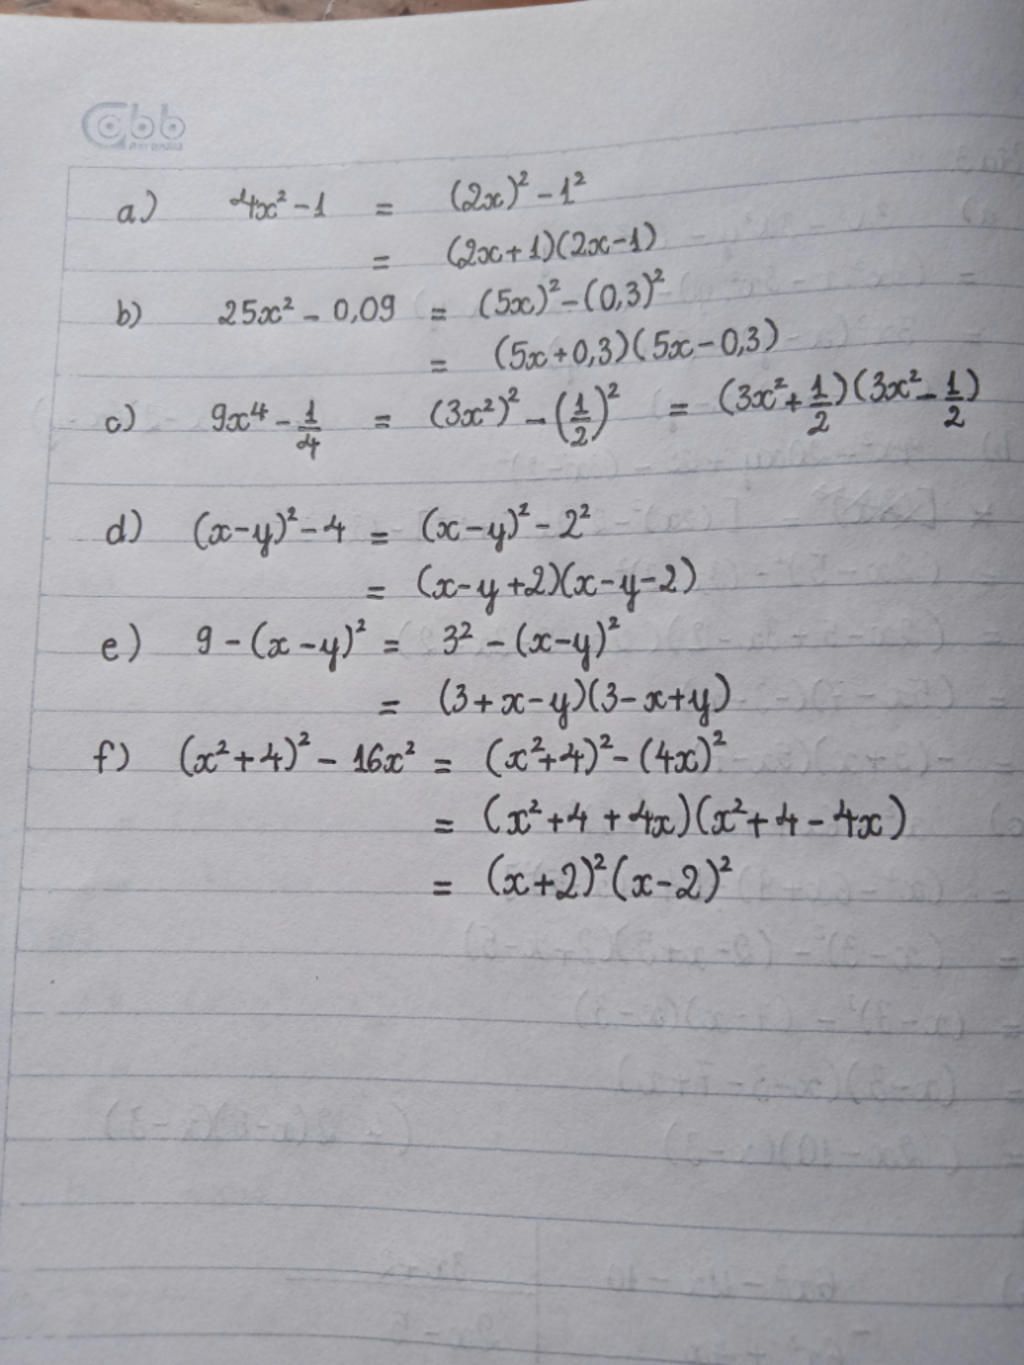 Cabb
a) 4x² - 1 = (2x)² - 1²
= (2x+1)(2x-1)
b) 25x² - 0,09 = (5x)² - (0,3)²
= (5x+0,3)(5x-0,3)
c) 9x⁴ - 1/4 = (3x²)² - (1/2)² = (3x² + 1/2)(3x² - 1/2)
d) (x-y)² - 4 = (x-y)² - 2²
= (x-y+2)(x-y-2)
e) 9 - (x-y)² = 3² - (x-y)²
= (3+x-y)(3-x+y)
f) (x²+4)² - 16x² = (x²+4)² - (4x)²
= (x²+4+4x)(x²+4-4x)
= (x+2)²(x-2)²